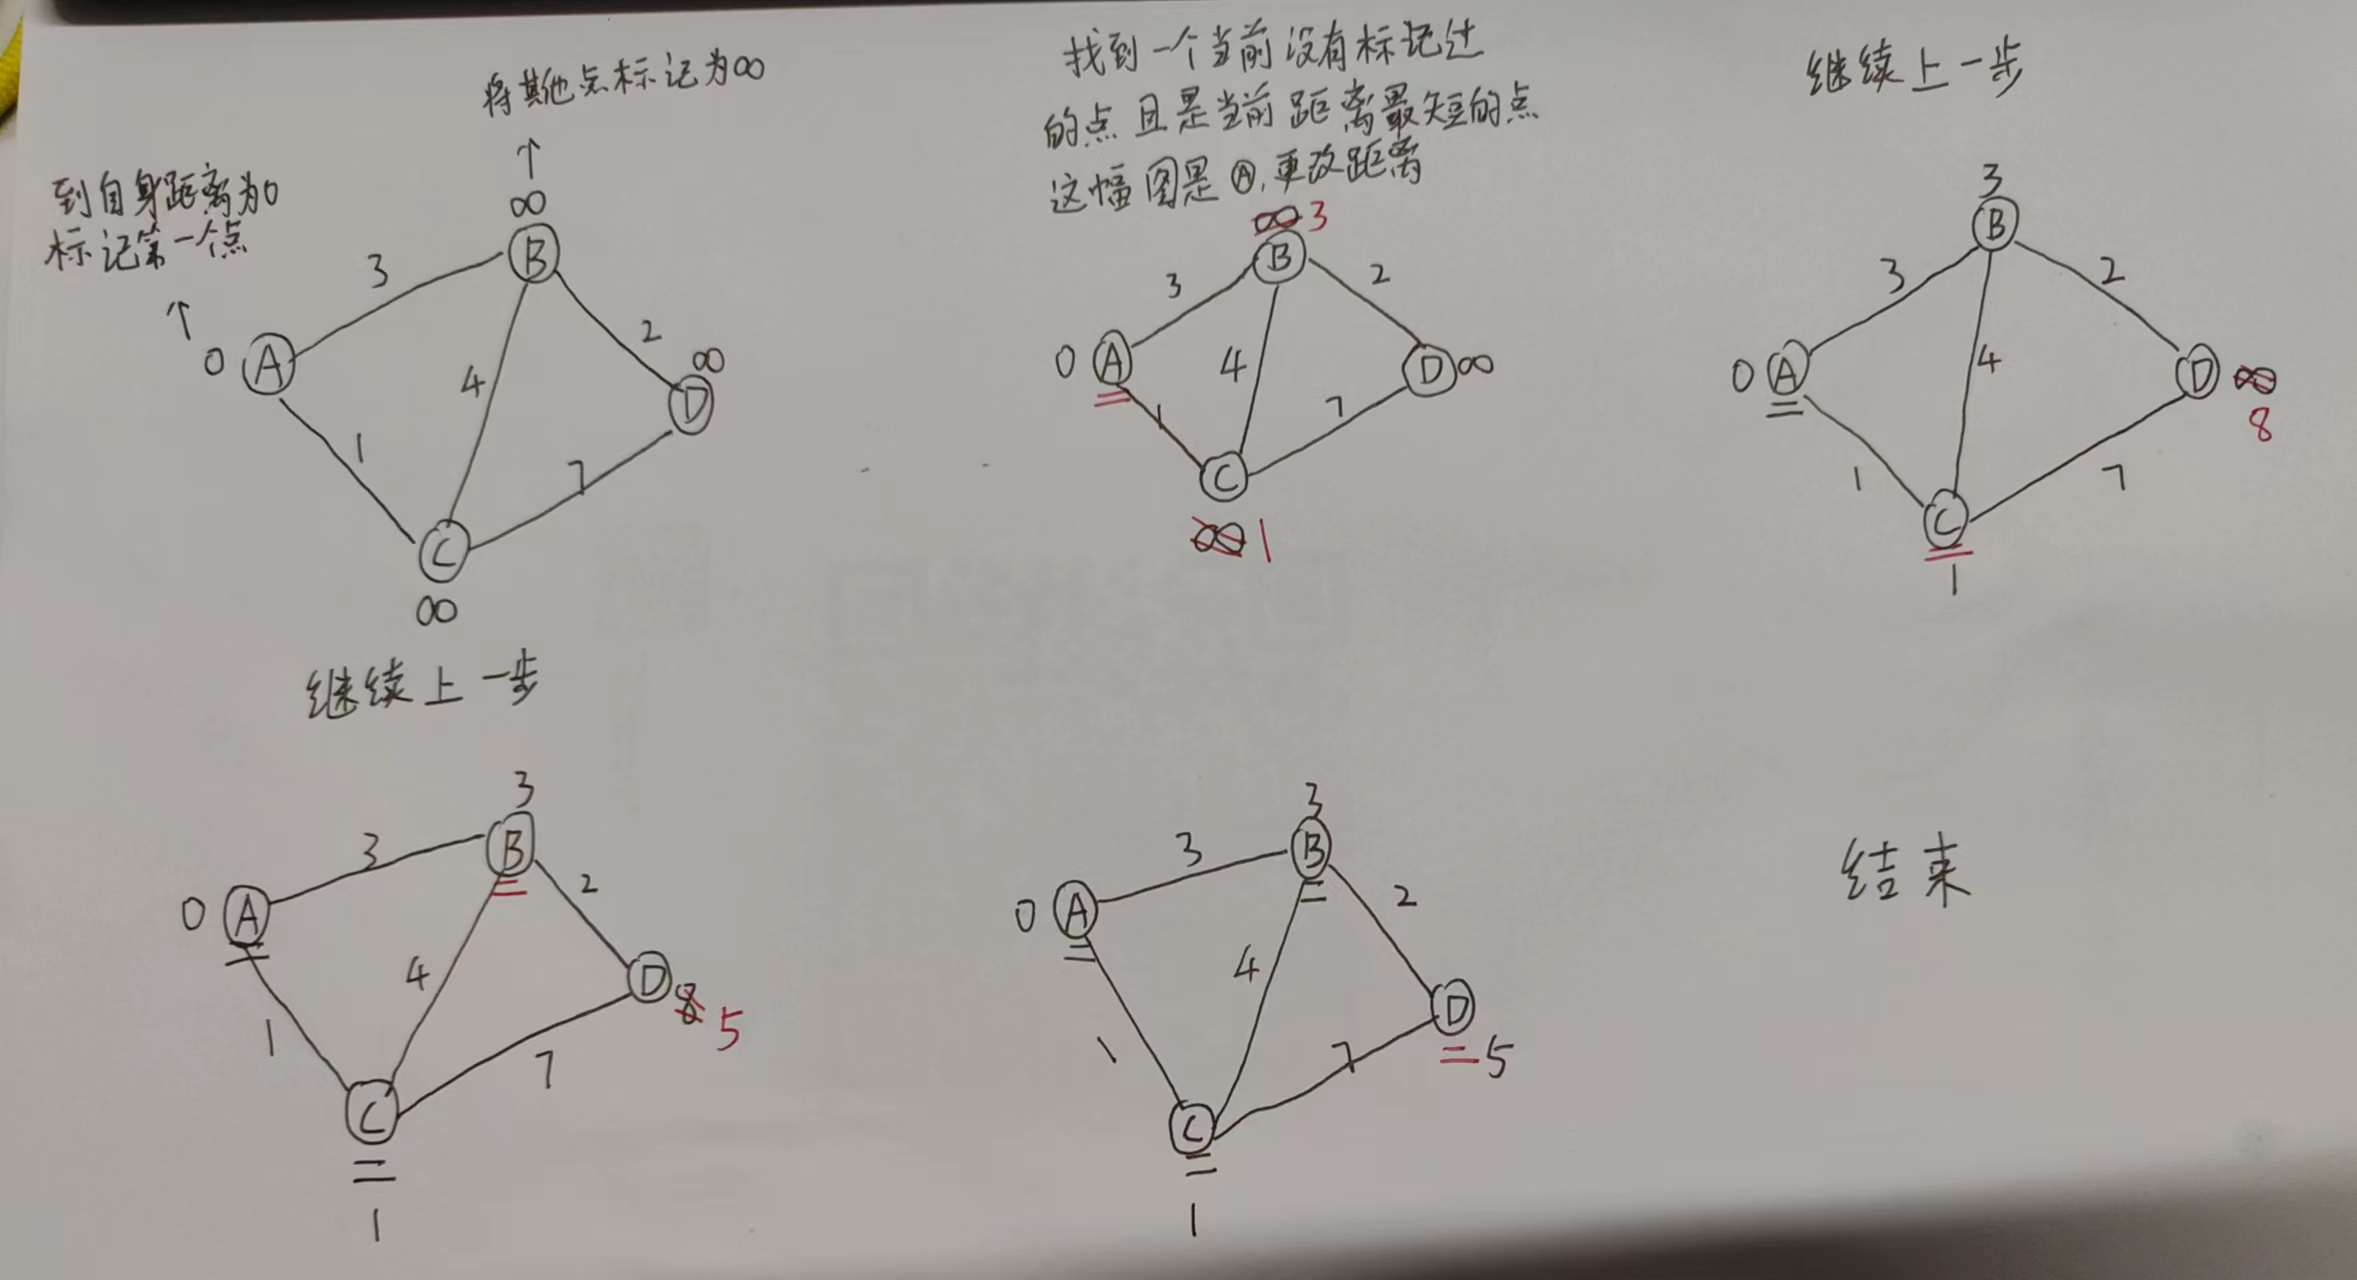 将其他点标记为∞
↑
到自身距离为0
标记第一个点
↑
∞
B
3
0
A
4
2
∞
D
1
7
C
∞
找到一个当前没有标记过
的点且是当前距离最短的点
这幅图是Ⓐ,更改距离
∞ 3
B
3
2
0
A
4
D
∞
1
7
C
∞ 1
继续上一步
3
B
3
2
0
A
4
D
∞
8
1
7
C
1
继续上一步
3
B
3
2
0
A
4
D
8 5
1
7
C
1
3
B
3
2
0
A
4
D
5
1
7
C
1
结束